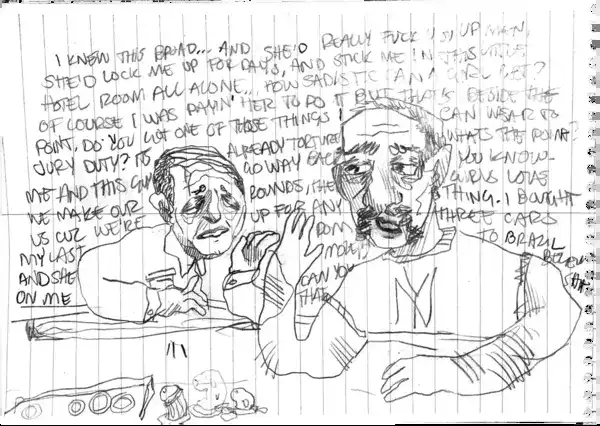 I KNEW THIS BROAD... AND SHE'D REALLY FUCK YOU UP MAN,
SHE'D LOCK ME UP FOR DAYS, AND STICK ME IN THIS LITTLE
HOTEL ROOM ALL ALONE... HOW SADISTIC CAN A GIRL GET?
OF COURSE I WAS PAYIN' HER TO DO IT BUT THAT'S BESIDE THE
POINT. DO YOU GOT ONE OF THOSE THINGS I CAN WEAR TO
JURY DUTY? ALREADY TORTURE WHATS THE POINT?
ME AND THIS GUY GO WAY BACK YOU KNOW
WE MAKE OUR ROUNDS, THE GURLS LOVE
US CUZ WE'RE UP FOR ANY THING. I BOUGHT
MY LAST THREE CARS
AND SHE TO BRAZIL
ON ME CAN YOU
THAT
NY